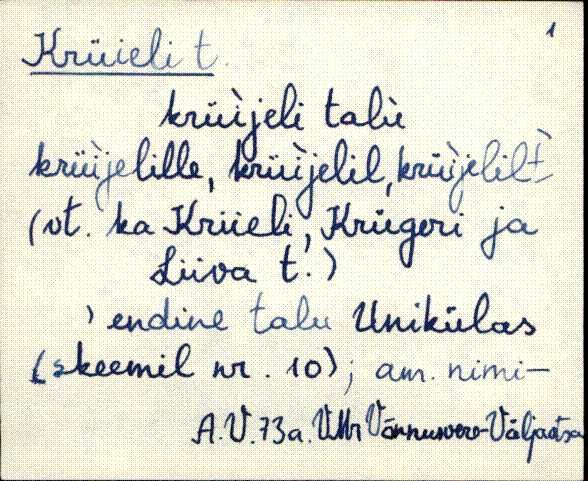 1
Krüieli t.
krüìjeli talù
krüìjelille, krüìjelil, krüìjelil±
(vt. ka Krüeli, Krügeri ja
Liiva t.)
› endine talu Unikülas
(skeemil nr. 10); am. nimi–
A.V. 73a. VMr Vännuvere-Väljaotsa